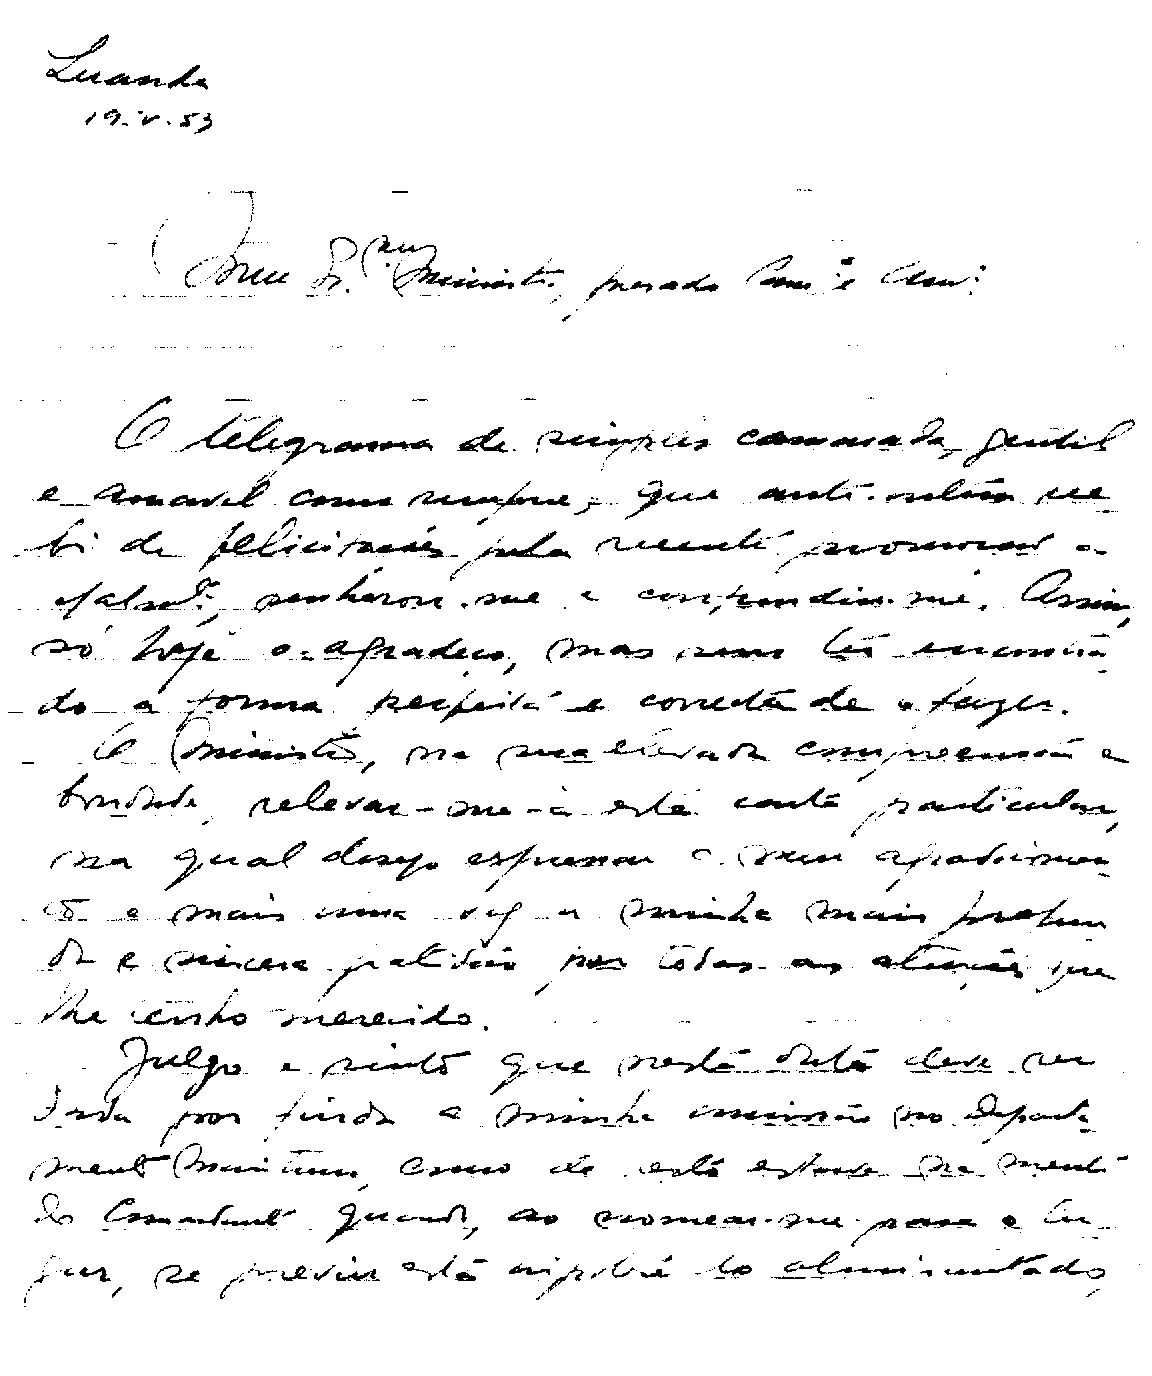 Luanda
19.V.53
Meu Sr. Ministro, prezado Cam.e Am.:
O telegrama de simples camarada, gentil
e amavel como sempre, que ante-ontem rece-
bi de felicitações pela recente promoção a
penhoron-me e confundiu-me. Assim,
só hoje o agradeço, mas sem ter encontra-
do a forma perfeita e correcta de o fazer.
O Ministro, na sua elevada compreensão e
bondade, relevar-me-á esta carta particular,
na qual desejo expressar o meu agradecimen-
to e mais uma vez a minha mais profun-
da e sincera gratidão por todas as atenções que
lhe tenho merecido.
Julgo e sinto que nesta data deve ser
dada por finda a minha comissão no departa-
mento Marítimo, como de resto estava na mente
do Comandante quando, ao nomear-me para o lu-
gar, se previu esta hipótese do almirantado,